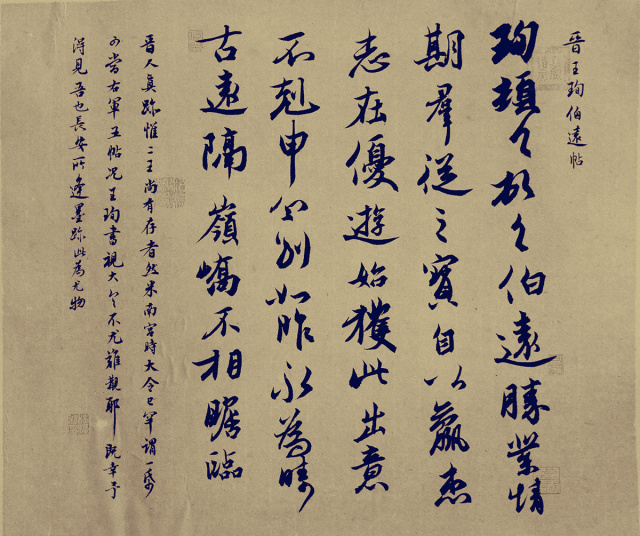 晉王珣伯遠帖
珣頓〻首〻伯遠勝業情
期羣從之寶自以羸患
志在優遊始獲此出意
不剋申分別如昨永為疇
古遠隔嶺嶠不相瞻臨
晉人真跡惟二王尚有存者然米南宮時大令已罕謂一紙
可當右軍五帖況王珣書視大令不尤難覯耶 既幸予
得見吾也長安所逢墨跡此為尤物